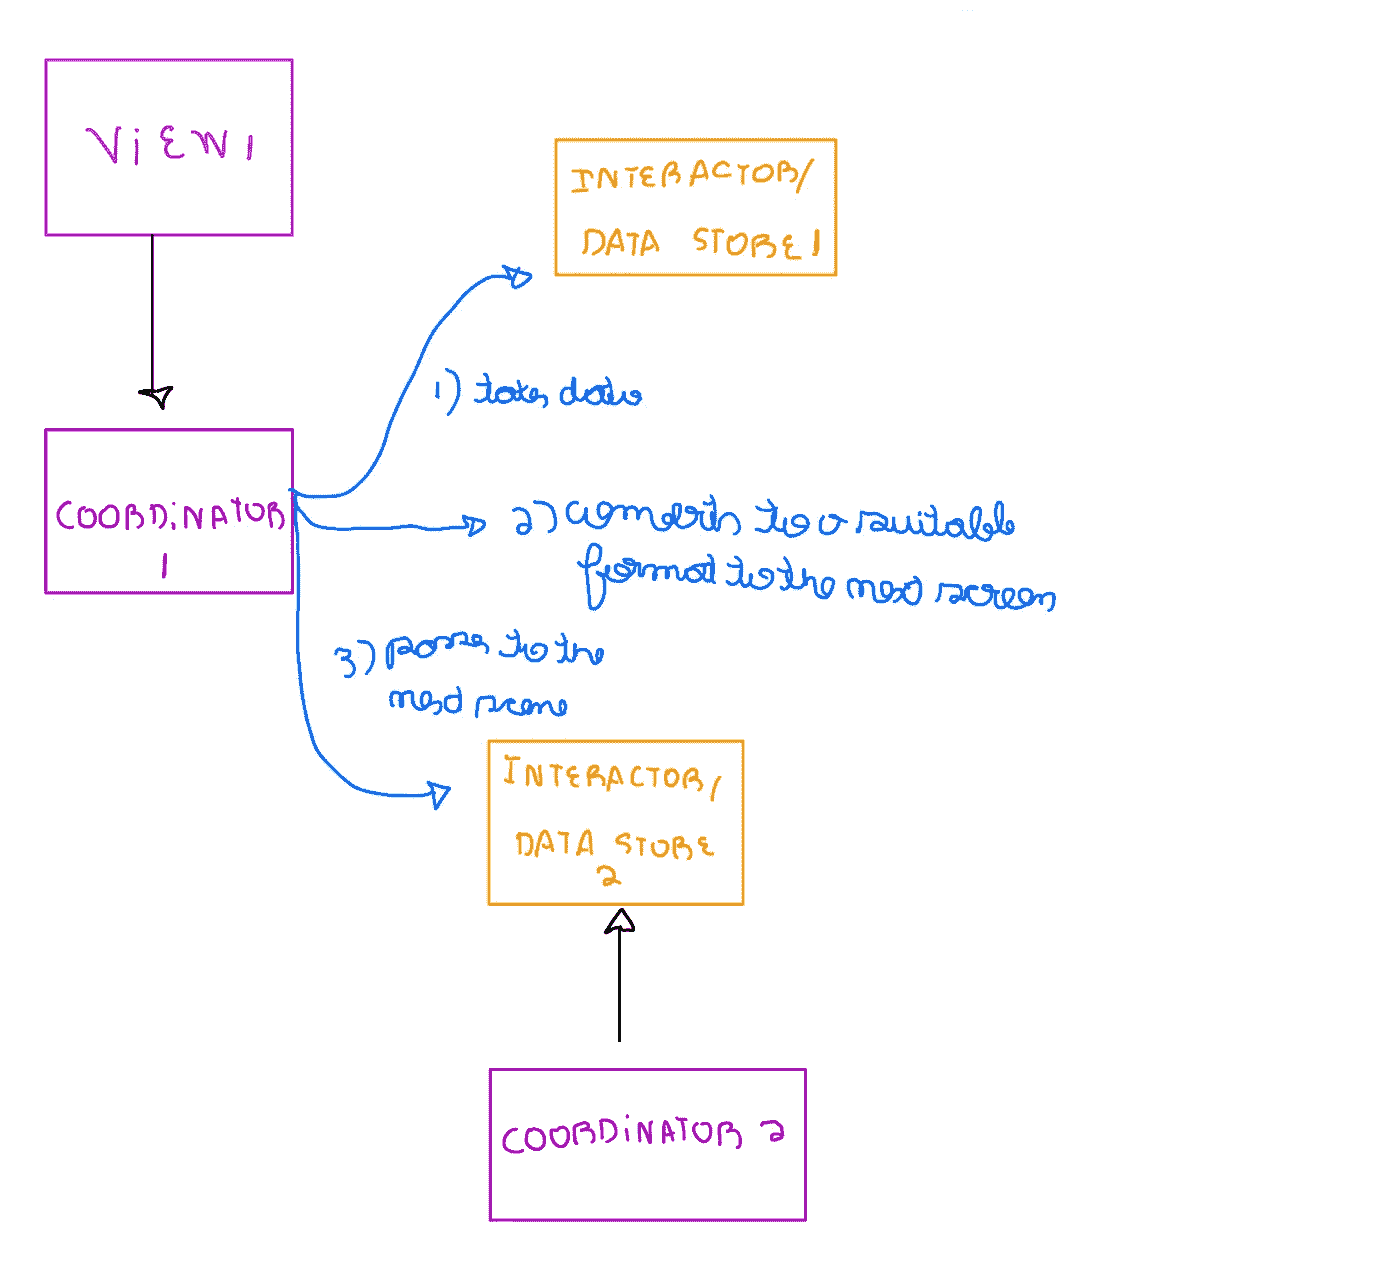 VIEW 1
INTERACTOR/
DATA STORE 1
1) takes data
COORDINATOR
1
2) converts to a suitable
format to the next screen
3) passes to the
next scene
INTERACTOR/
DATA STORE
2
COORDINATOR 2